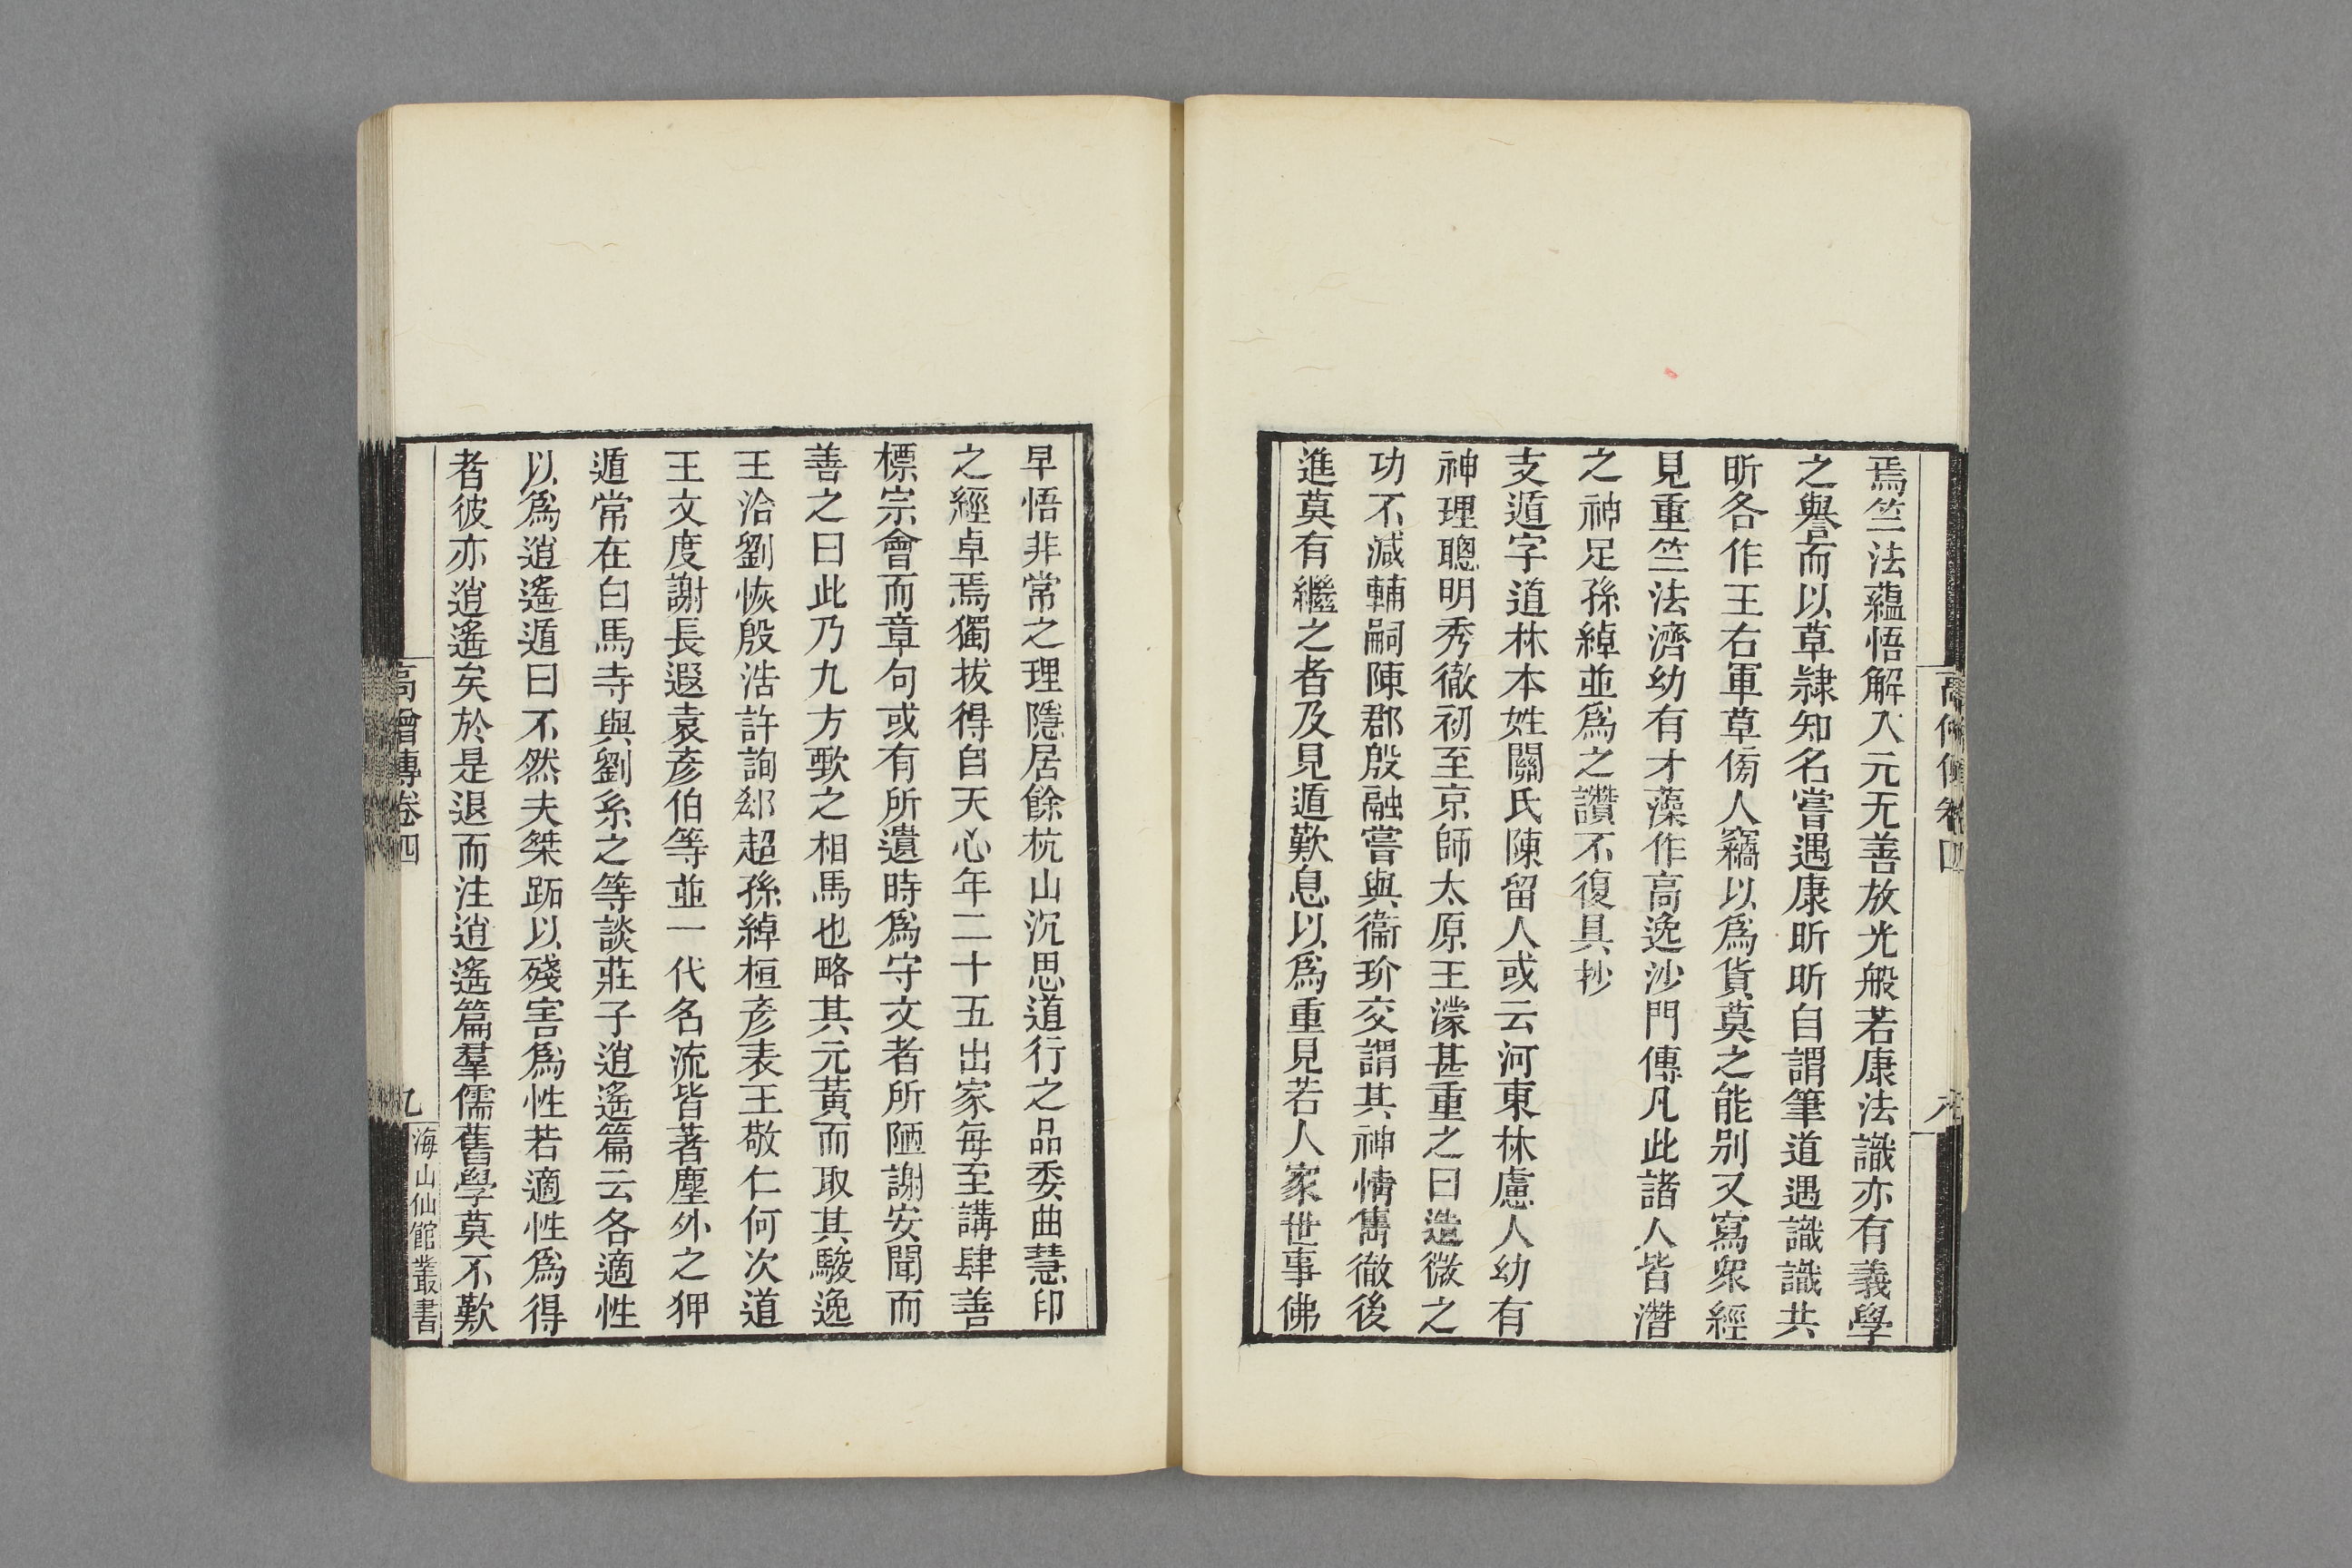 焉竺法蘊悟解入元无善放光般若康法識亦有義學
之譽而以草隸知名嘗遇康昕昕自謂筆道遇識識共
昕各作王右軍草傍人竊以爲貨莫之能别又寫衆經
見重竺法濟幼有才藻作高逸沙門傳凡此諸人皆潛
之神足孫綽並爲之讚不復具抄
支遁字道林本姓關氏陳留人或云河東林慮人幼有
神理聰明秀徹初至京師太原王濛甚重之曰造微之
功不減輔嗣陳郡殷融嘗與衞玠交謂其神情雋徹後
進莫有繼之者及見遁歎息以爲重見若人家世事佛
早悟非常之理隱居餘杭山沉思道行之品委曲慧印
之經卓焉獨拔得自天心年二十五出家每至講肆善
標宗會而章句或有所遺時爲守文者所陋謝安聞而
善之曰此乃九方歅之相馬也略其元黃而取其駿逸
王洽劉恢殷浩許詢郄超孫綽桓彥表王敬仁何次道
王文度謝長遐袁彥伯等並一代名流皆著塵外之狎
遁常在白馬寺與劉系之等談莊子逍遙篇云各適性
以爲逍遙遁曰不然夫桀跖以殘害爲性若適性爲得
者彼亦逍遙矣於是退而注逍遙篇羣儒舊學莫不歎
高僧傳卷四
九
海山仙館叢書